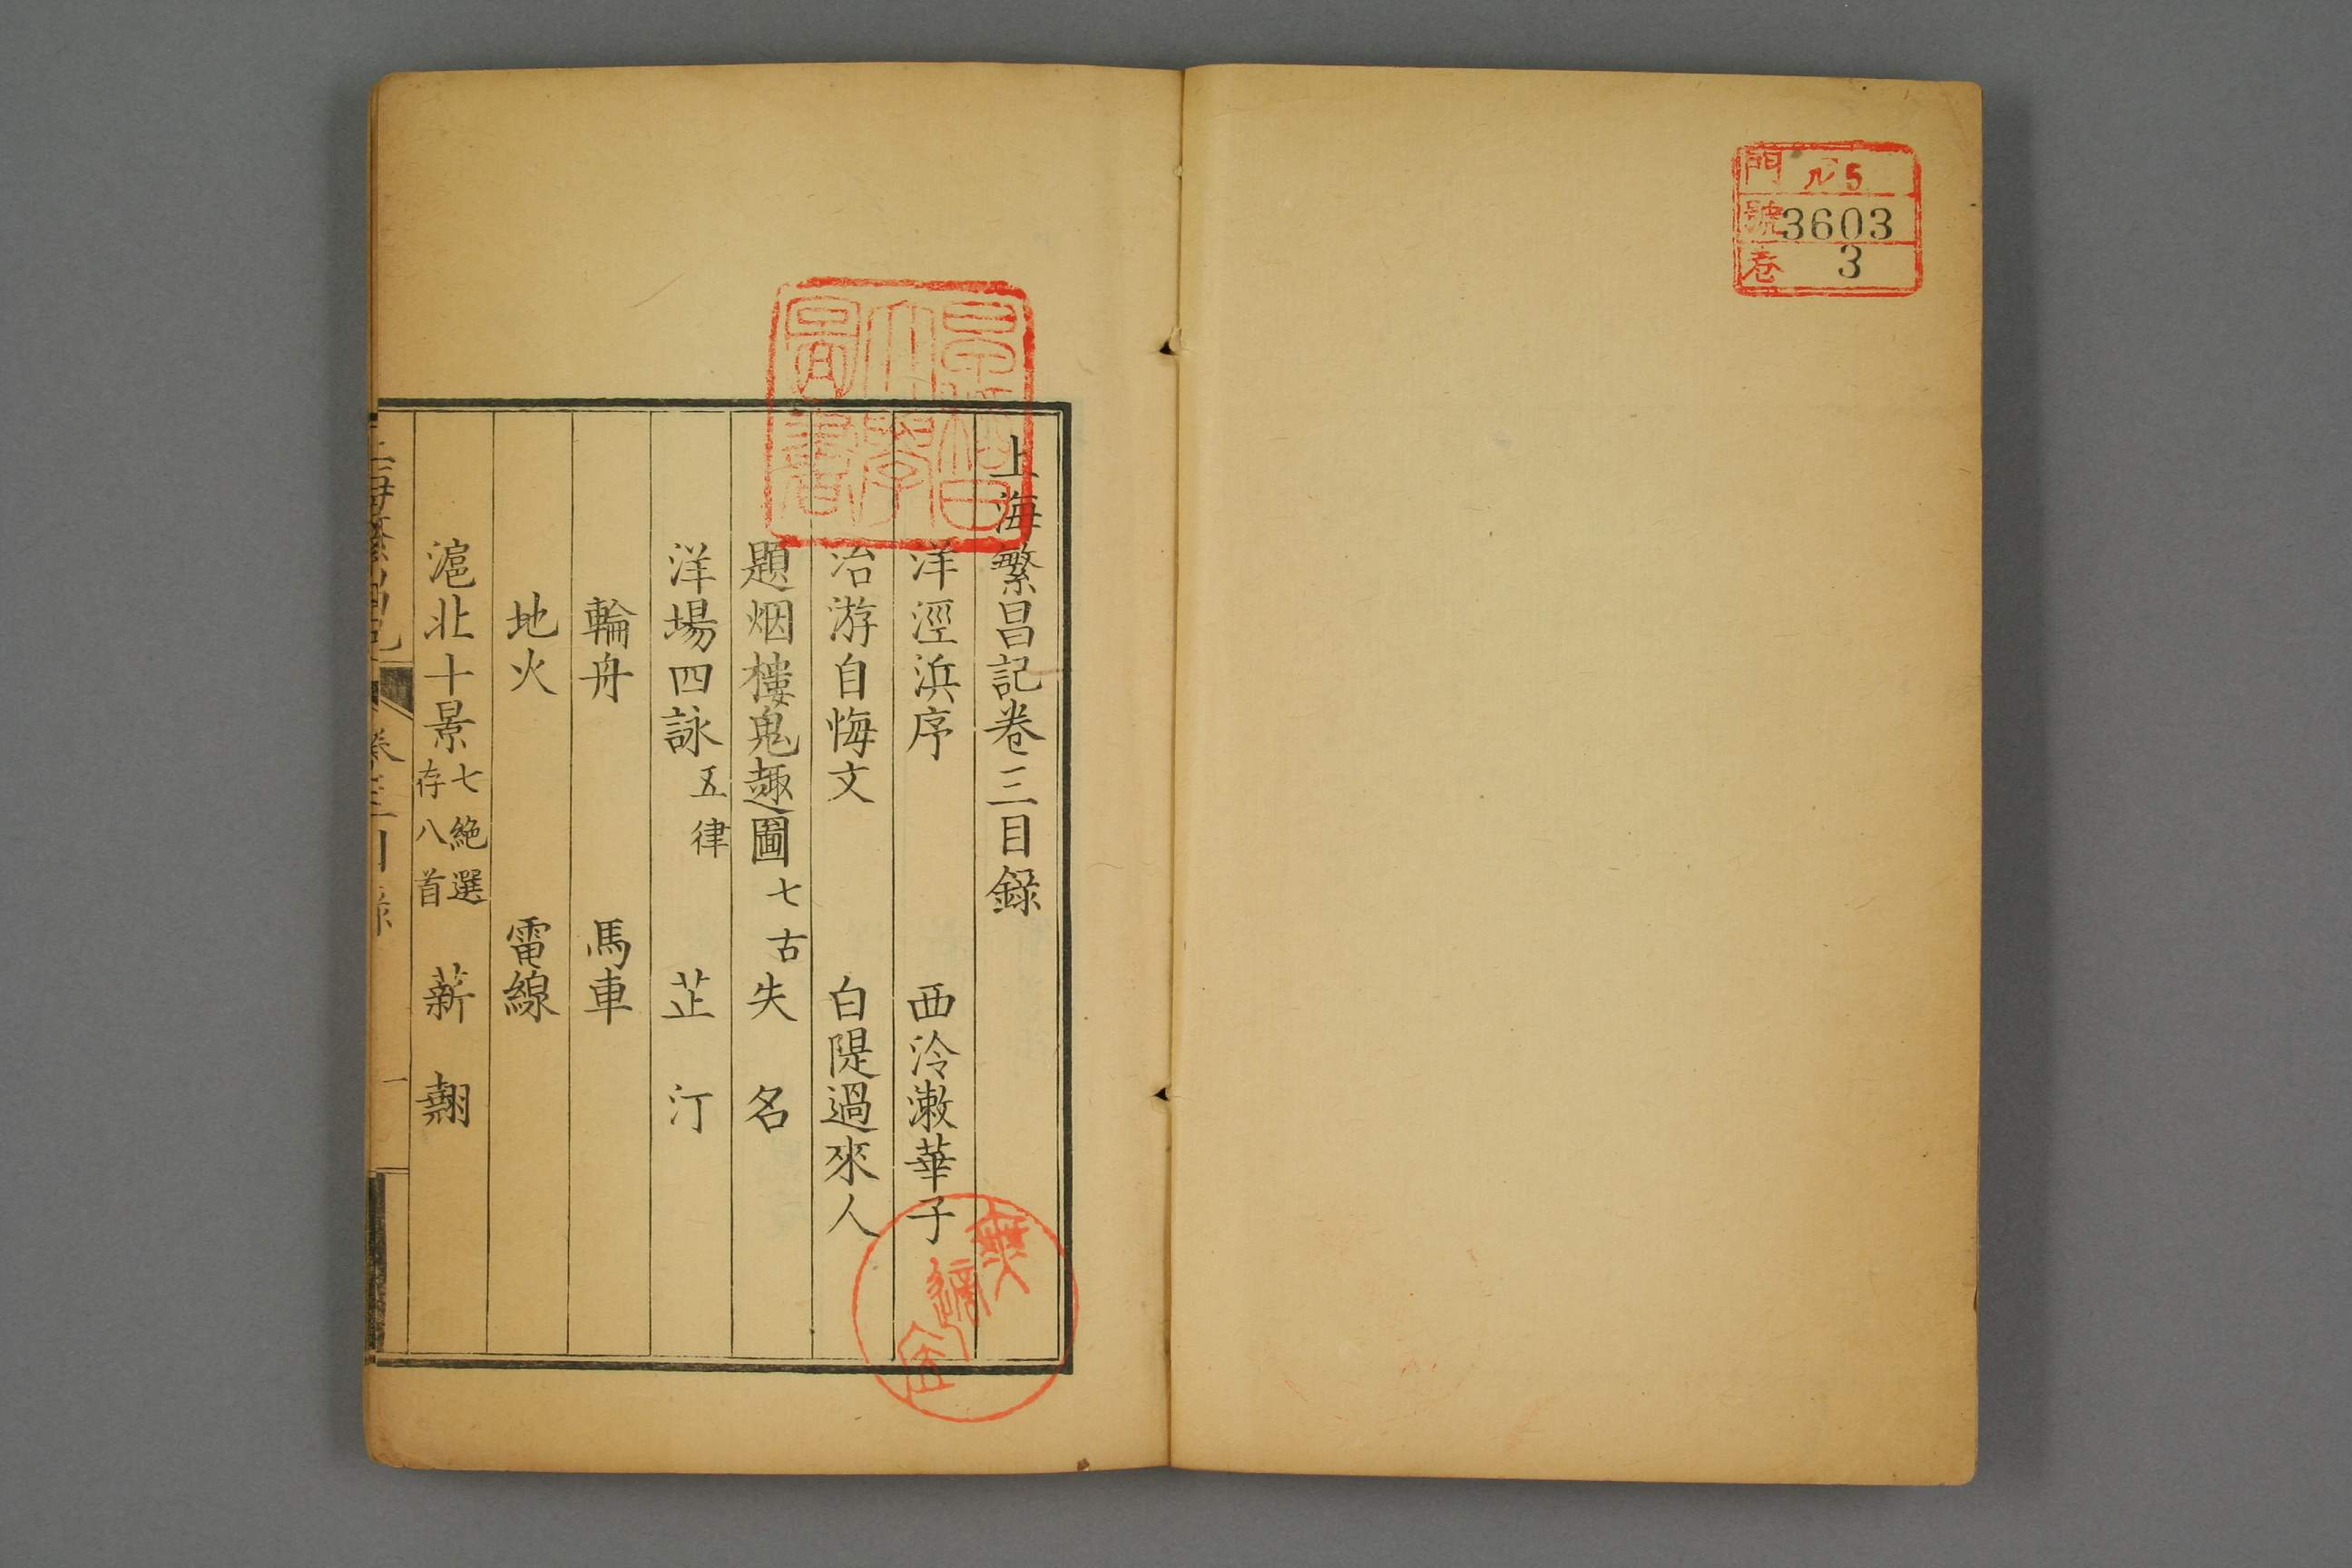 門 ル5
號 3603
卷 3
上海繁昌記卷三目錄
洋涇浜序 西泠漱華子
冶游自悔文 白隄過來人
題烟樓鬼趣圖 七古 失名
洋場四詠 五律 芷汀
輪舟 馬車
地火 電線
滬北十景 七絕選存八首 薪翹
上海繁昌記 卷三目錄 一
早稻田大學圖書